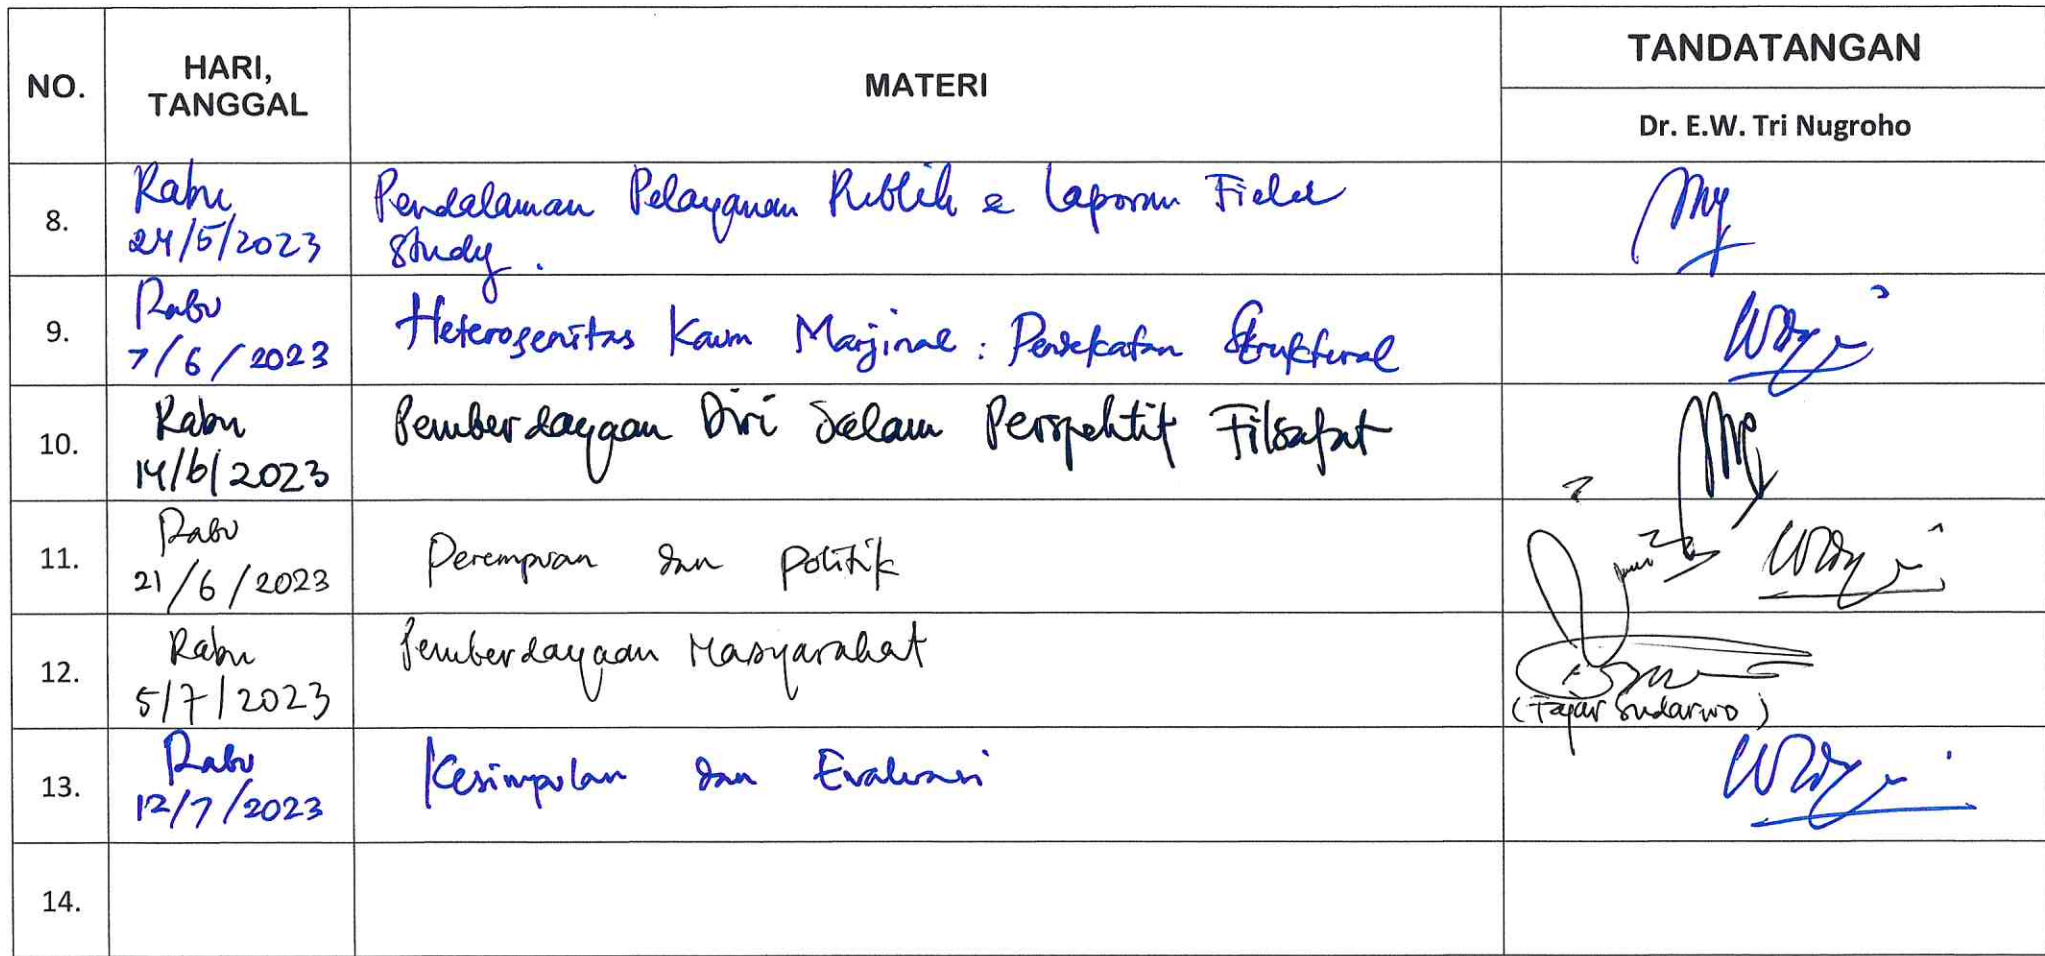 NO.
HARI,
TANGGAL
MATERI
TANDATANGAN
Dr. E.W. Tri Nugroho
8.
Rabu
24/5/2023
Pendalaman Pelayanan Publik & Laporan Field
study.
9.
Rabu
7/6/2023
Heterogenitas Kaum Marjinal : Pendekatan Struktural
10.
Rabu
14/6/2023
Pemberdayaan Diri dalam Perspektif Filsafat
11.
Rabu
21/6/2023
Perempuan dan Politik
12.
Rabu
5/7/2023
Pemberdayaan Masyarakat
(Fajar Sudarwo)
13.
Rabu
12/7/2023
Kesimpulan dan Evaluasi
14.